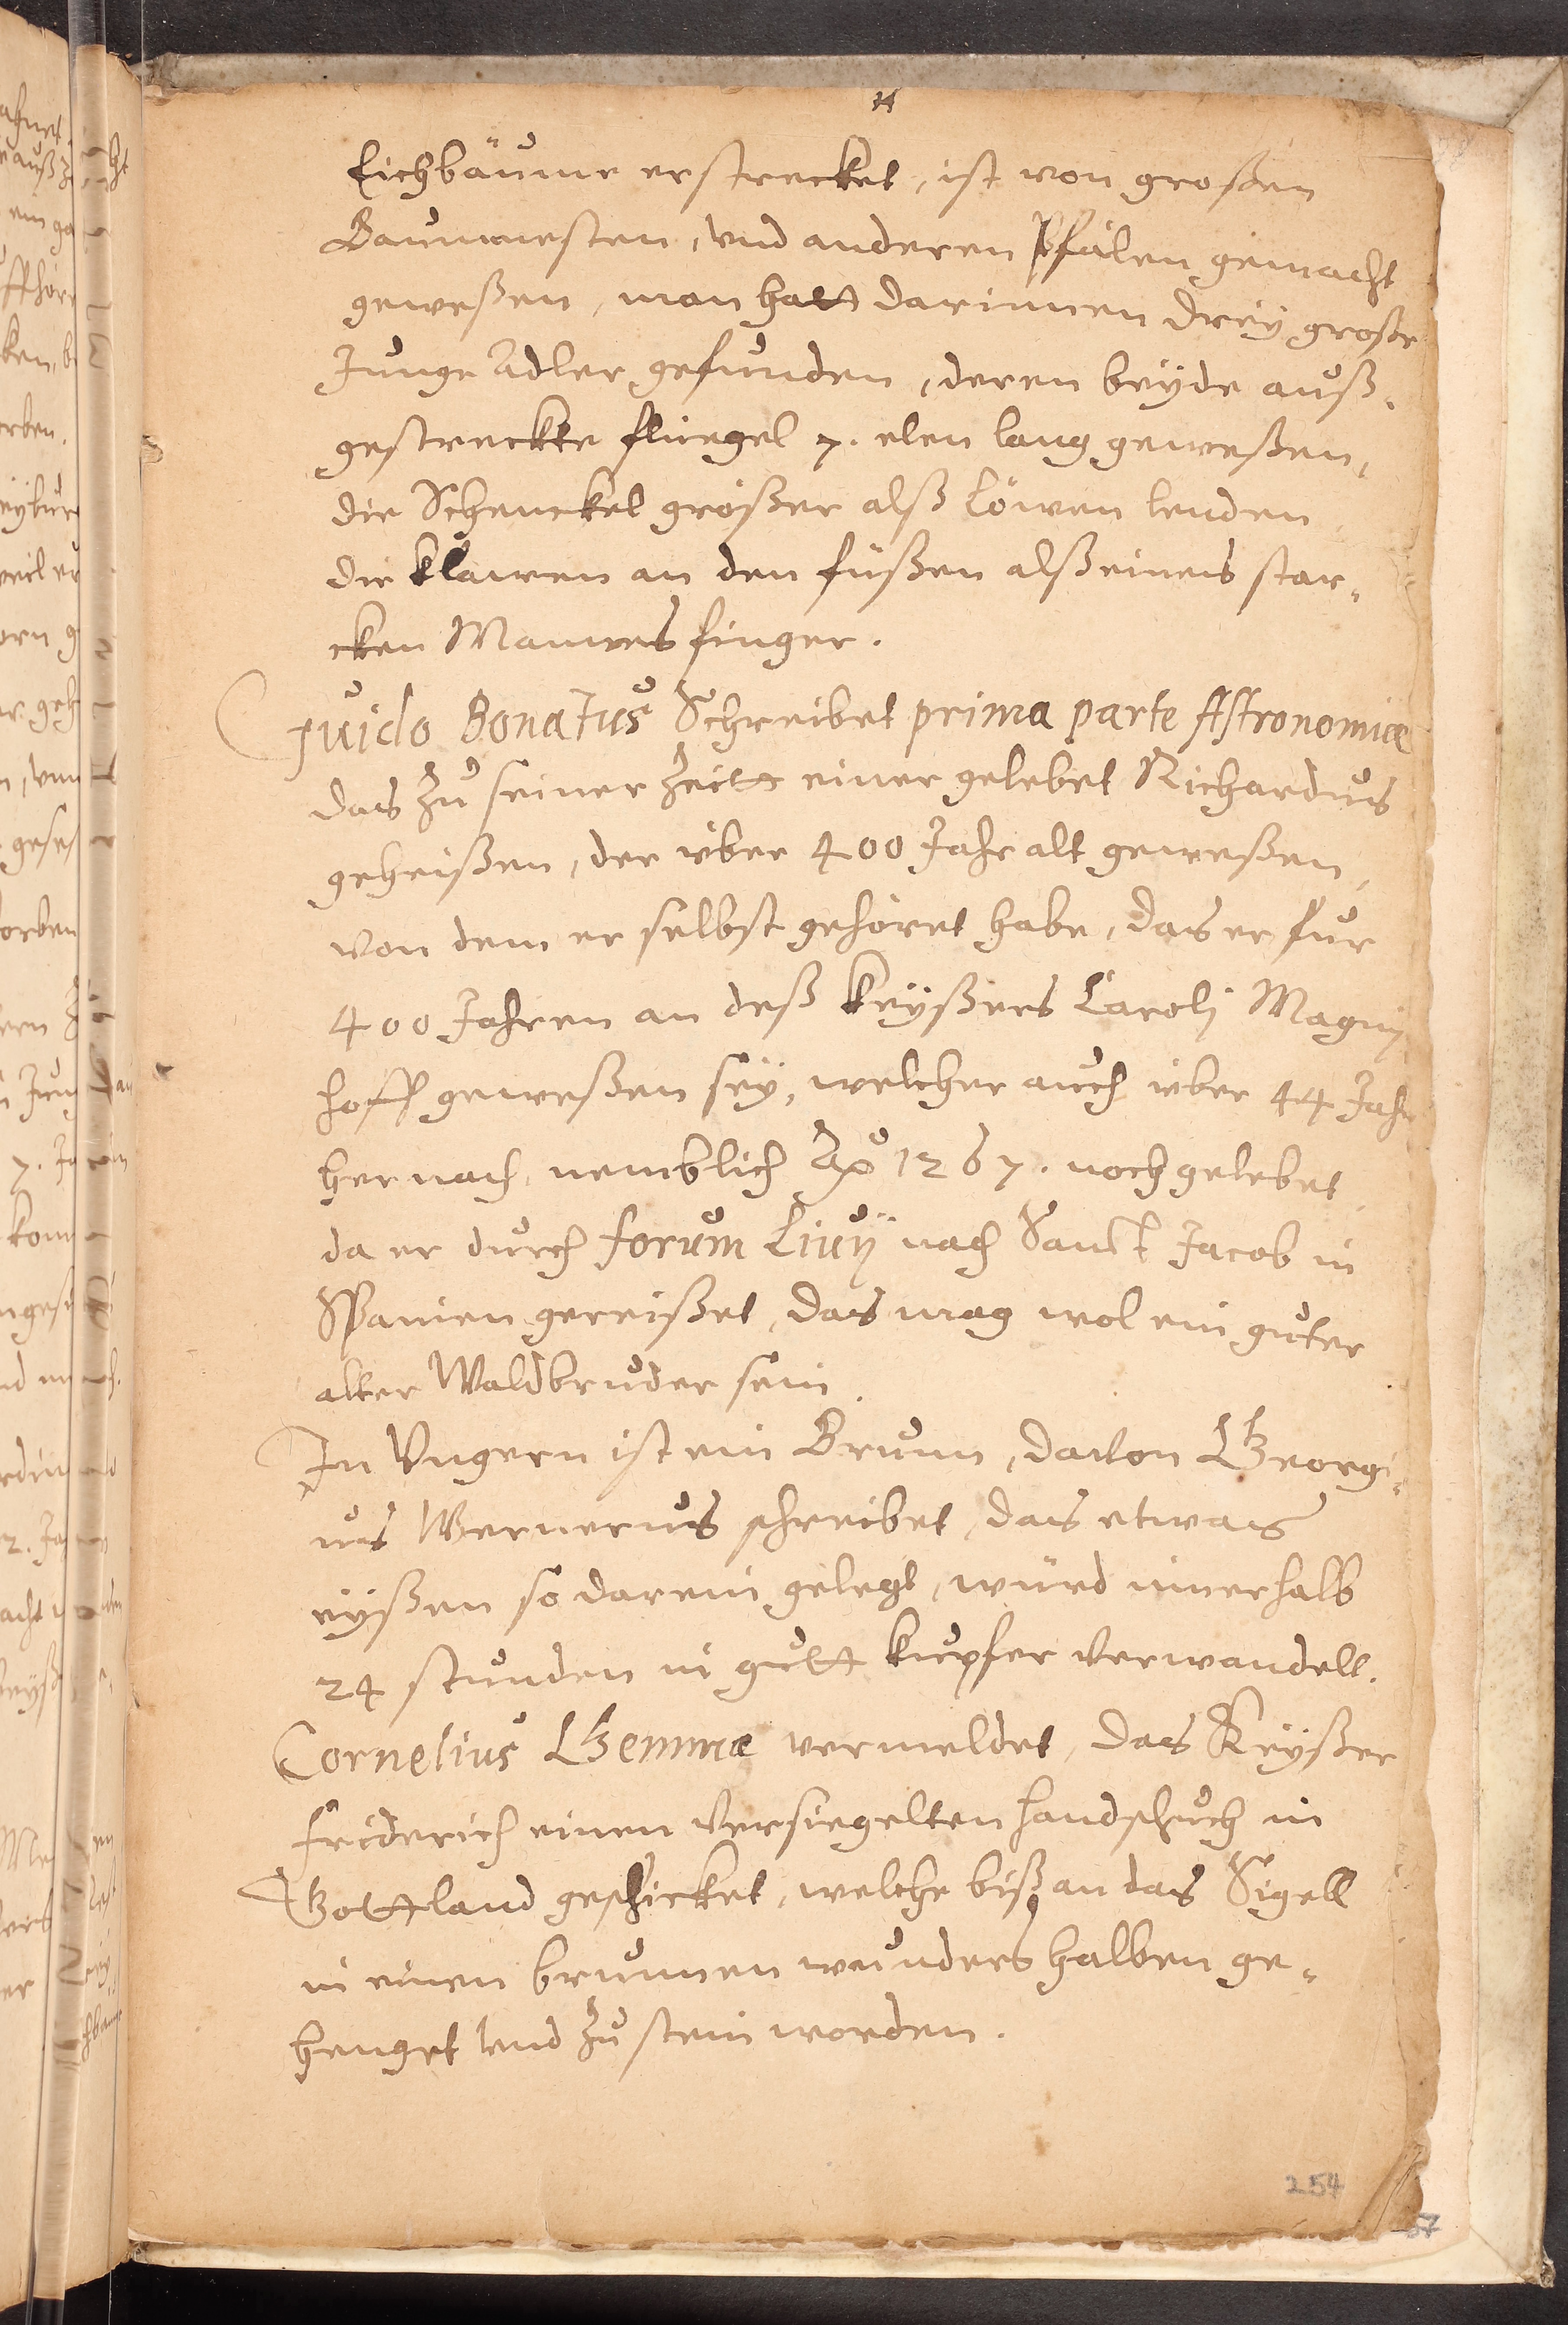 14
Eichbäume erstrecket, ist von großen
Baumnesten, vnd anderen Pfälen gemacht
geweßen, man hatt darinnen dreÿ große
Junge Adler gefunden, deren beÿde auß,
gestreckte fluegel 7. elen lang geweßen,
die Schenckel größer alß Löwen lenden
die klawen an den füßen alß eines star,
cken Mannes finger.
Guido Bonatus Schreibet prima parte Astronomiæ
das zu seiner Zeitt einer gelebet Richardus
geheißen, der über 400 Jahr alt geweßen,
von dem er selbst gehöret habe, das er fur
400 Jahren an deß Keÿßers Carolj Magnj
hoff geweßen seÿ, welcher auch über 44 Jahr
hernach, nemblich Ao 1267. noch gelebet
da er durch forum Liuÿ nach Sanct Jacob in
Spanien gereißet, das mag wol ein guter
alter Waldbruder sein.
In Vngern ist ein Brunn, dauon Georgi,
us Wernerus schreibet, das etwas
eÿßen so darein gelegt, würd innerhalb
24 stunden in gutt kupfer verwandelt.
Cornelius Gemmæ vermeldet, das Keÿßer
friderich einen versiegelten handschuch in
Gottland geschicket, welche biß an das Sigell
in einen brunnen wunders halben ge,
henget vnd zu stein worden.
254